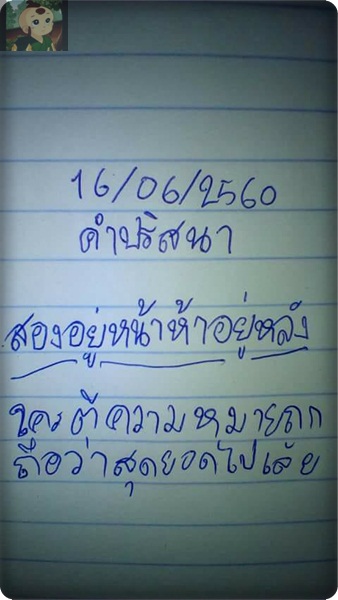 16/06/2560
คำปริศนา
สองอยู่หน้าห้าอยู่หลัง
ใครตีความหมายถูก
ถือว่าสุดยอดไปเล้ย